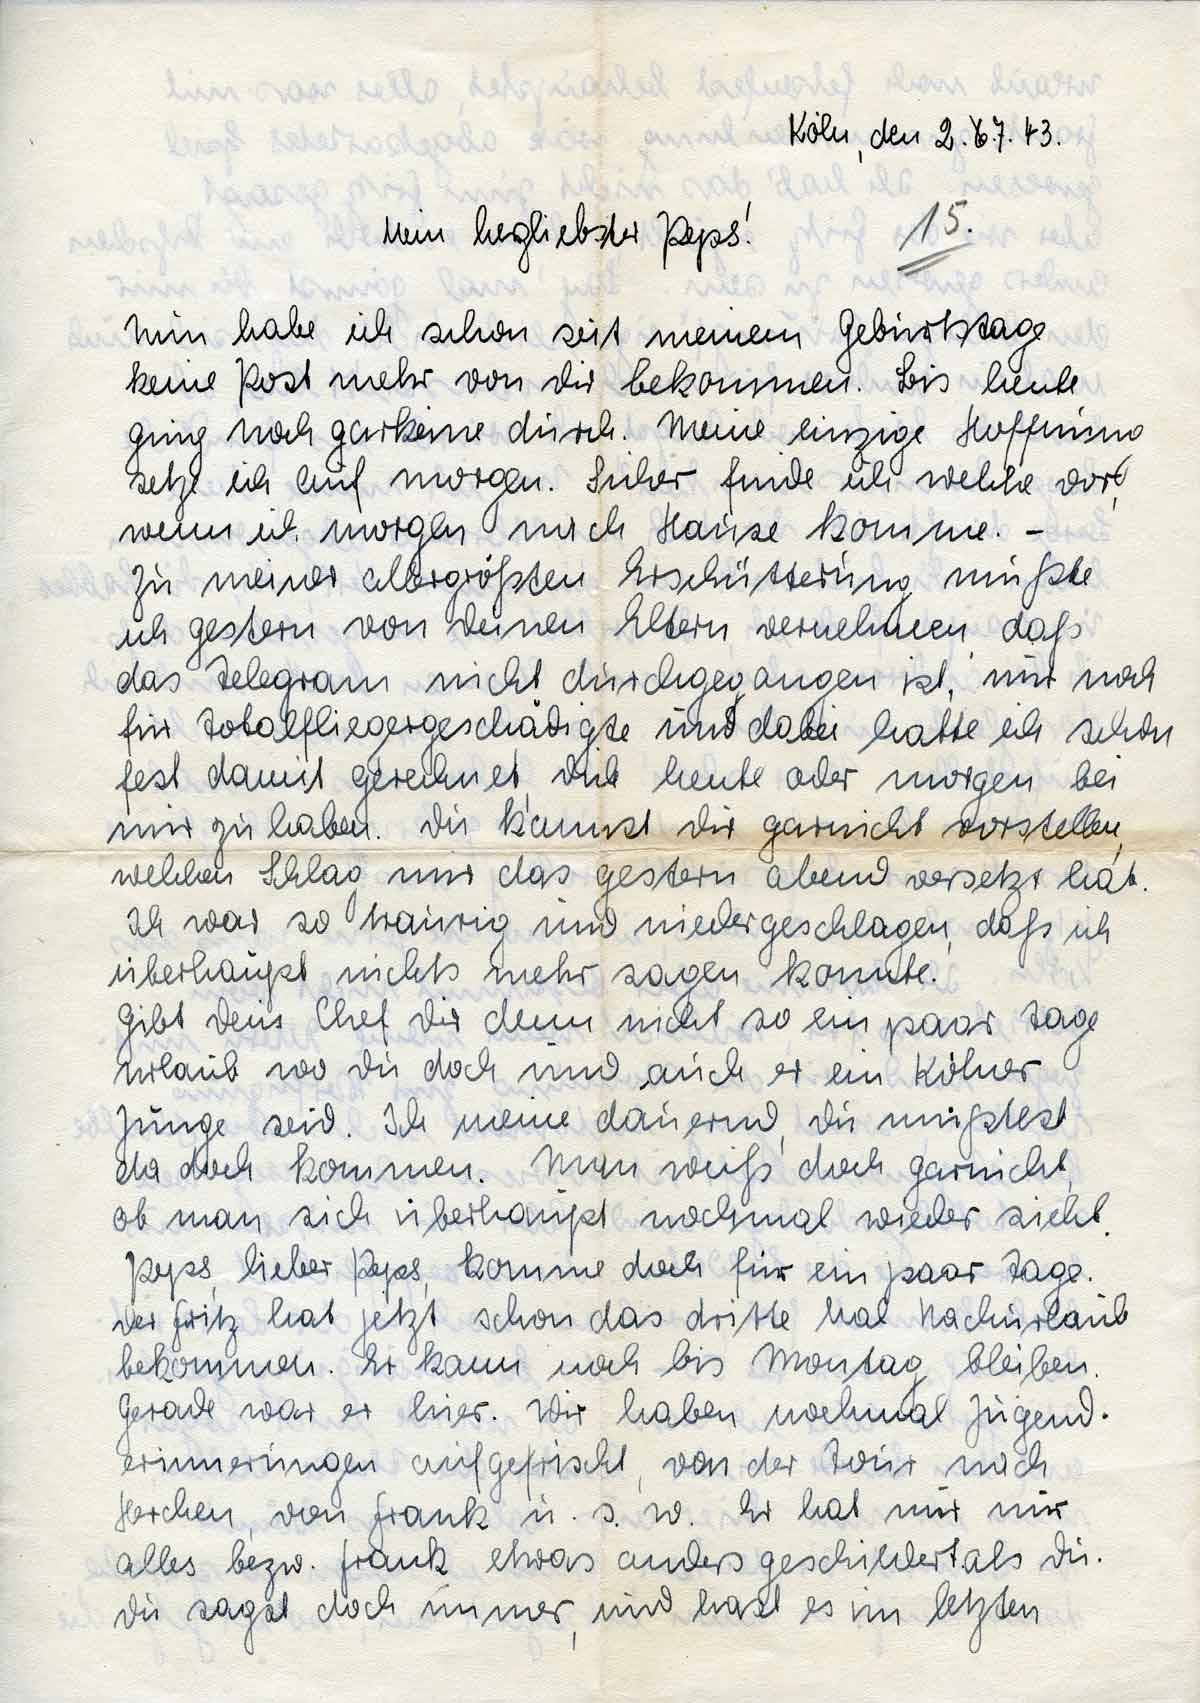 Köln, den 2.7.43.
15.
Mein herzliebster Peps!
Nun habe ich schon seit meinem Geburtstage
keine Post mehr von dir bekommen. Bis heute
ging noch garkeine durch. Meine einzige Hoffnung
setze ich auf morgen. Sicher finde ich welche dort,
wenn ich morgen nach Hause komme. –
Zu meiner allergrößten Erschütterung mußte
ich gestern von deinen Eltern vernehmen, daß
das Telegram nicht durchgegangen ist, nur noch
für Totalfliegergeschädigte und dabei hatte ich schon
fest damit gerechnet, dich heute oder morgen bei
mir zu haben. Du kannst dir garnicht vorstellen,
welchen Schlag mir das gestern abend versetzt hat.
Ich war so traurig und niedergeschlagen, daß ich
überhaupt nichts mehr sagen konnte.
Gibt dein Chef dir denn nicht so ein paar Tage
Urlaub wo du doch und auch er ein Kölner
Junge seid. Ich meine dauernd, du müßtest
da doch kommen. Man weiß doch garnicht,
ob man sich überhaupt nochmal wieder sieht.
Peps, lieber Peps, komme doch für ein paar Tage.
Der Fritz hat jetzt schon das dritte Mal Nachurlaub
bekommen. Er kann noch bis Montag bleiben.
Gerade war er hier. Wir haben nochmal Jugend-
erinnerungen aufgefrischt, von der Tour nach
Herchen, von Frank u. s. w. Er hat mir nur
alles bezw. Frank etwas anders geschildert als du.
Du sagst doch immer, und hast es im letzten